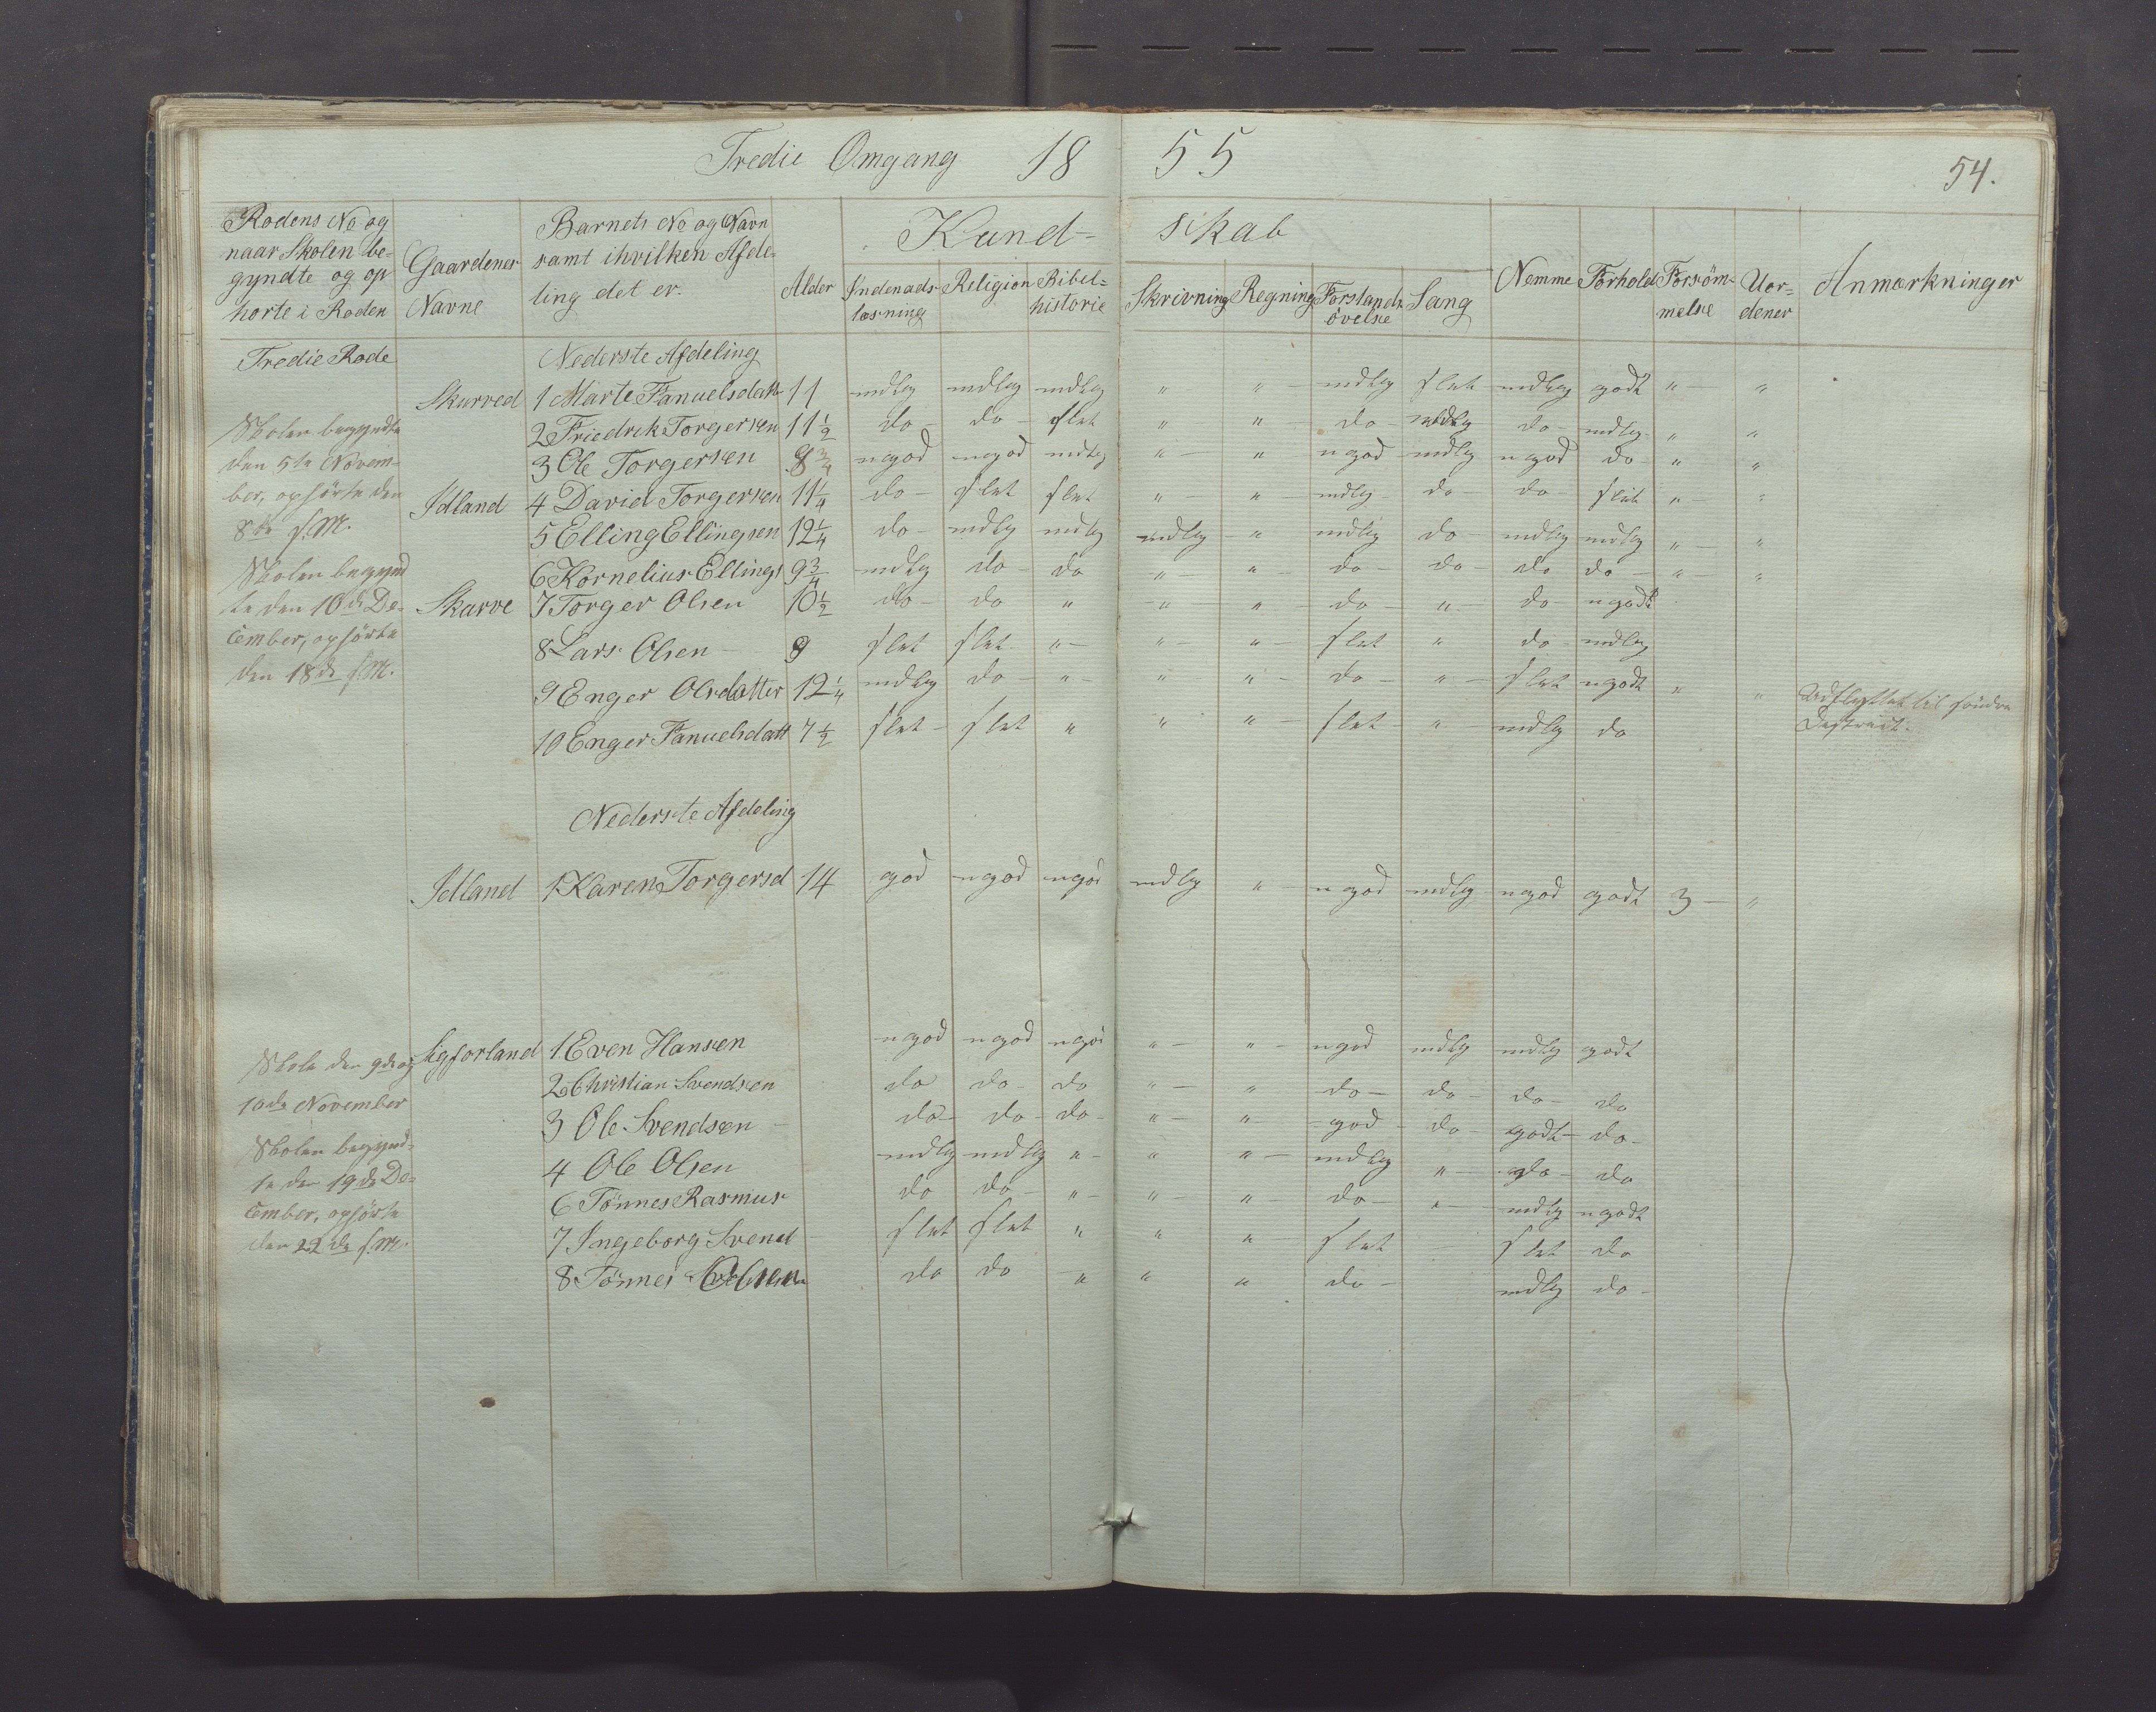 Tredie Omgang 18 55
54.
Rodens No og naar Skolen be- gyndte og op hörte i Roden
Gaardenes Navne
Barnets No og Navn samt ihvilken Afde- ling det er.
Alder
Kund- skab
Indenads- læsning
Religion
Bibel- historie
Skrivning
Regning
Forstands övelse
Sang
Nemme
Forhold
Forsöm- melse
Uor- dener
Anmærkninger
Tredie Rode
Nederste Afdeling
Skarved 1 Marte Fanuelsdatt 11 mdlg mdlg mdlg " " mdlg slet mdlg godt " "
2 Friedrik Torgersen 11 1/2 do do slet " " do mdlg do mdlg " "
3 Ole Torgersen 8 3/4 ngod ngod mdlg " " ngod mdlg ngod do " "
Idland 4 David Torgersen 11 1/4 do slet slet " " mdlg do do slet " "
5 Elling Ellingsen 12 1/4 do mdlg mdlg mdlg " mdlg do mdlg mdlg " "
6 Kornelius Ellings 9 3/4 mdlg do do " " do do do do " "
Skarve 7 Torger Olsen 10 1/2 do do " " " do " do ngodt
8 Lars Olsen 9 slet slet " " " slet " do mdlg
9 Enger Olsdatter 12 1/4 mdlg do " " " do " slet ngodt " " Udflyttet til söndre
Destrict.
10 Enger Fanuelsdatt 7 1/2 slet slet " " " slet " mdlg do
Skolen begyndte
den 5te Novem-
ber, ophörte den
8de s. M.
Skolen begynd
te den 16de De-
cember, ophörte
den 18de s. M.
Nederste Afdeling
Idland 1 Karen Torgersd 14 god ngod ngod mdlg " ngod mdlg ngod godt 3 "
1 Even Hansen ngod ngod ngod " " ngod mdlg mdlg godt
2 Christian Svendsen do do do " " do do do do
3 Ole Svendsen do do do " " god do godt do
4 Ole Olsen mdlg mdlg " " " mdlg " do do
6 Tönnes Rasmus do do " " " do " mdlg ngodt
7 Ingeborg Svend slet slet " " " slet slet do
8 Tönnes do do " " " do mdlg do
Skole den 9de og
10de November
Skolen begynd-
te den 19de De-
cember, ophörte
den 22de s. M.